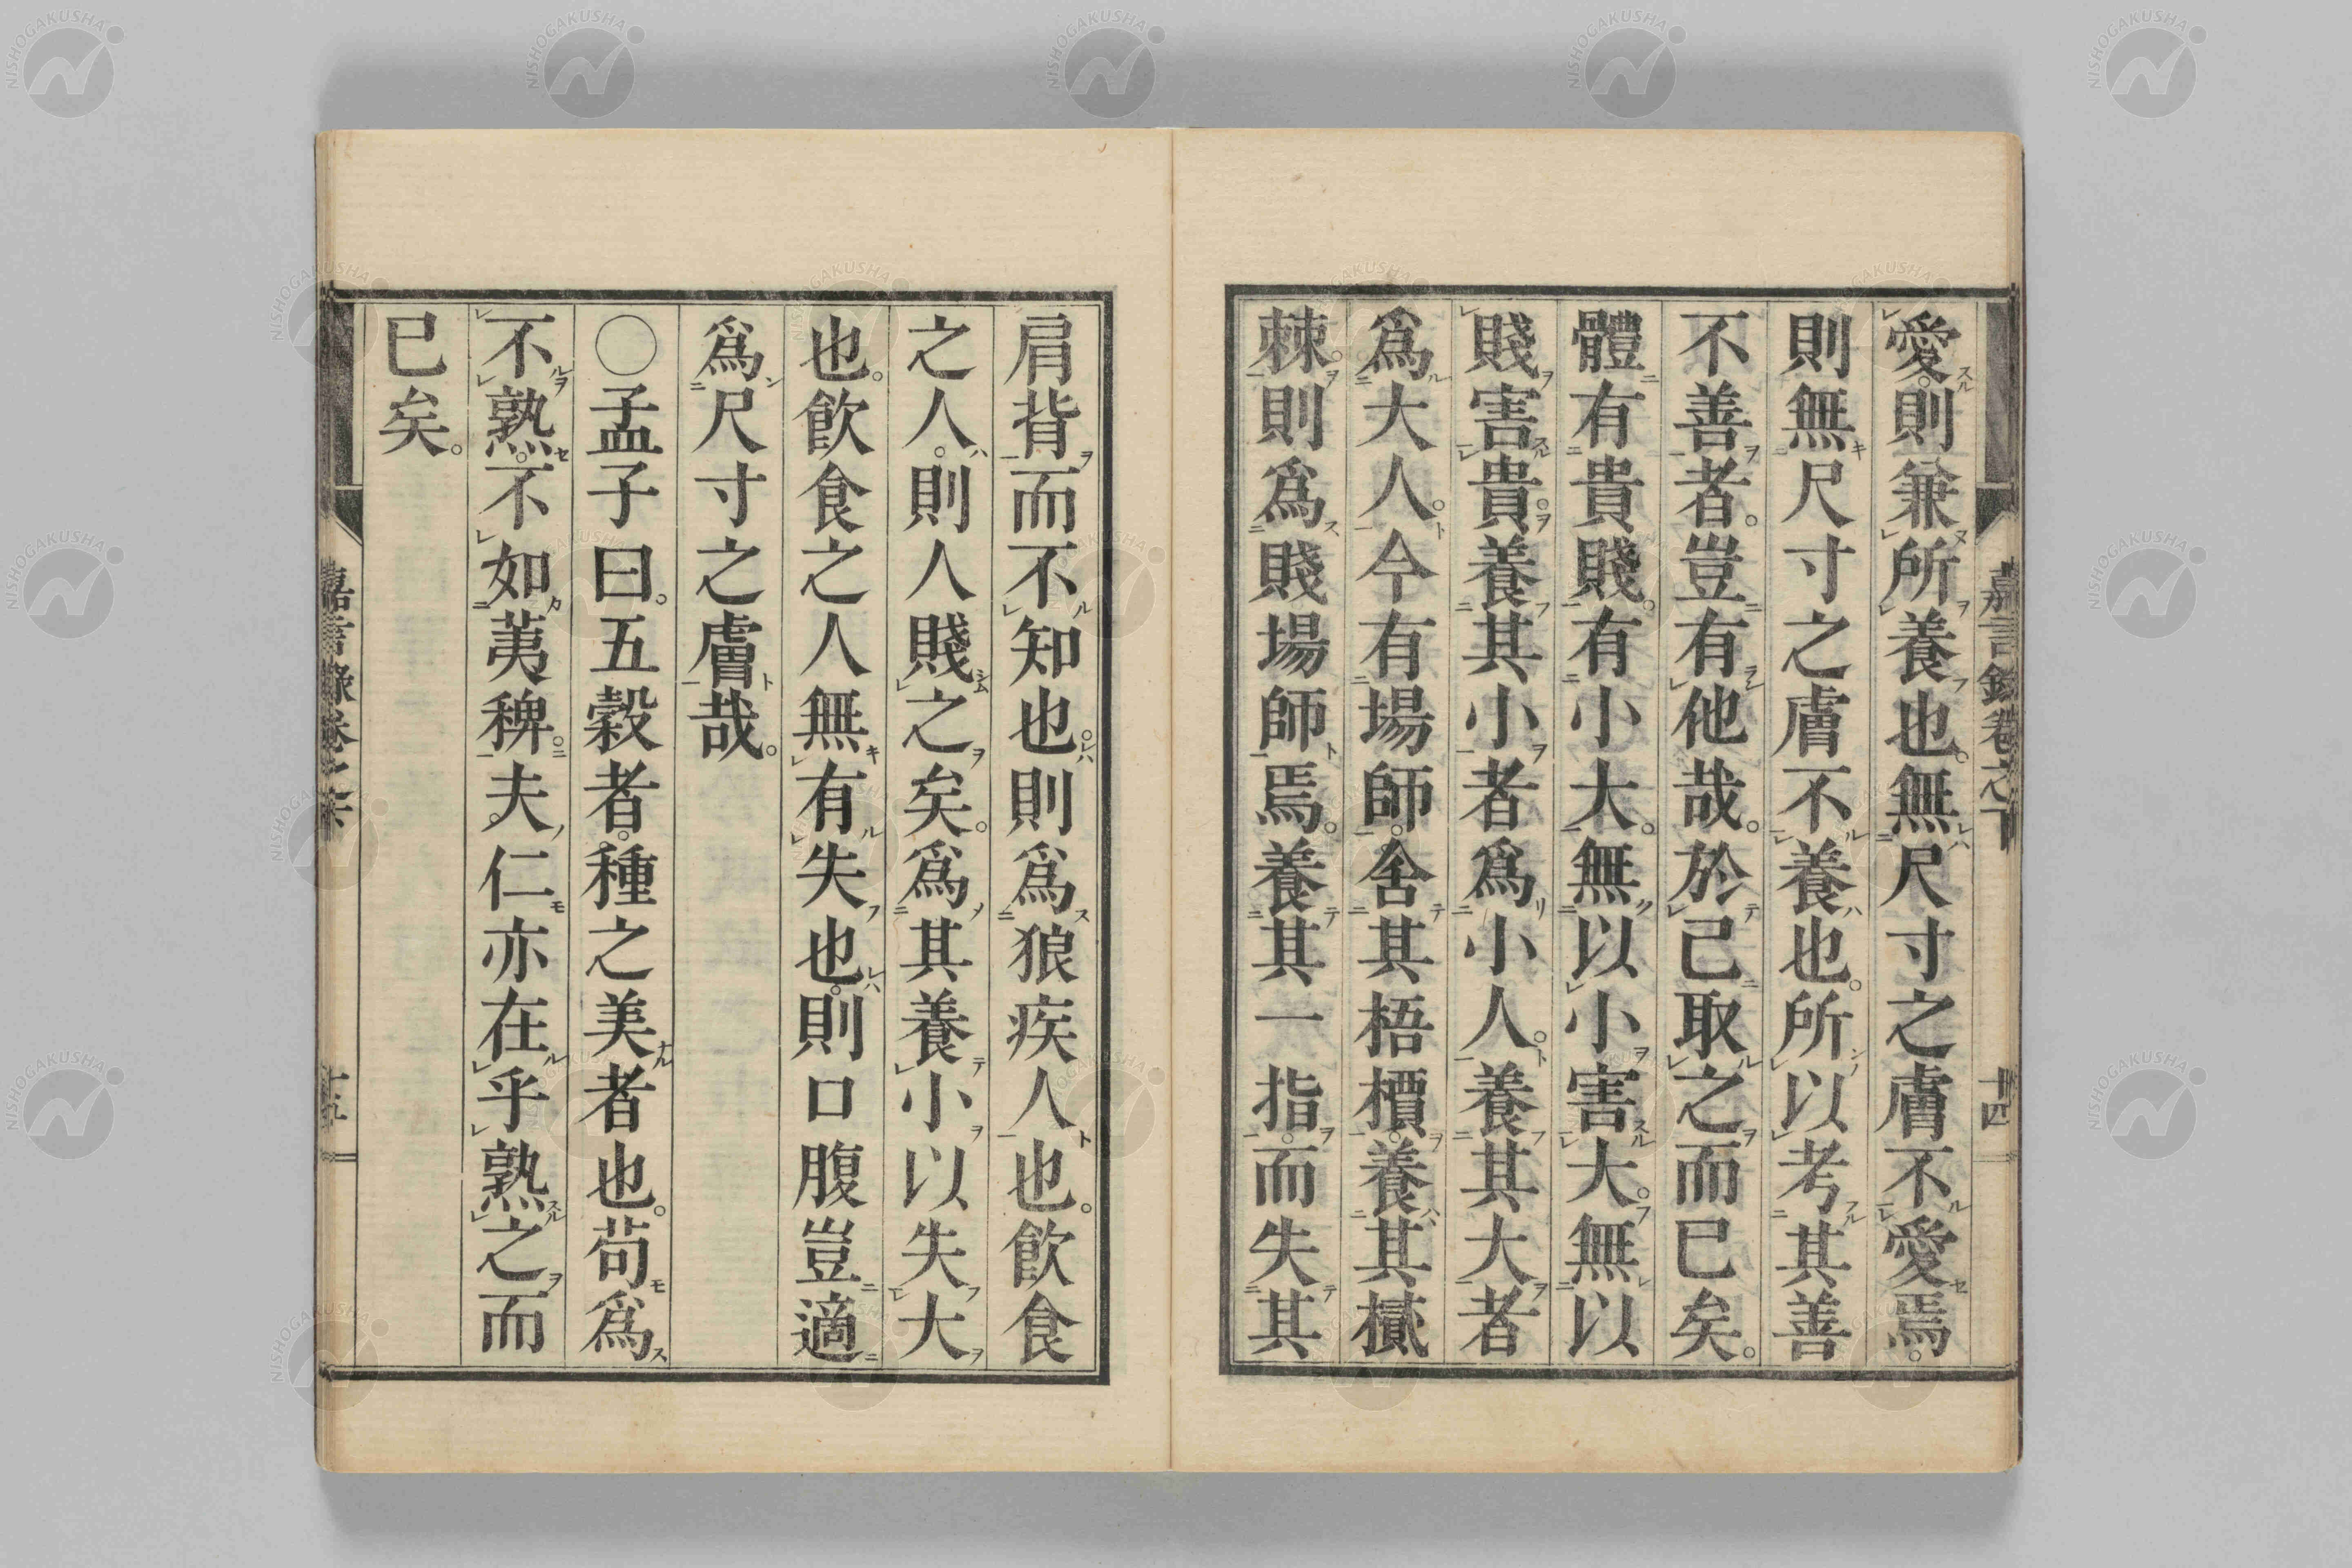 愛則兼所養也無尺寸之膚不愛焉
則無尺寸之膚不養也所以考其善
不善者豈有他哉於己取之而已矣
體有貴賤有小大無以小害大無以
賤害貴養其小者爲小人養其大者
爲大人今有場師舍其梧檟養其樲
棘則爲賤場師焉養其一指而失其
肩背而不知也則爲狼疾人也飮食
之人則人賤之矣爲其養小以失大
也飮食之人無有失也則口腹豈適
爲尺寸之膚哉
○孟子曰五穀者種之美者也苟爲
不熟不如荑稗夫仁亦在乎熟之而
已矣
嘉言錄卷之下
十四
NISHOGAKUSHA